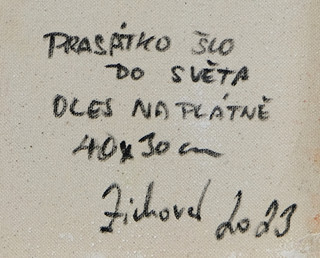 PRASÁTKO ŠLO
DO SVĚTA
OLEJ NA PLÁTNĚ
40x30 cm
2023